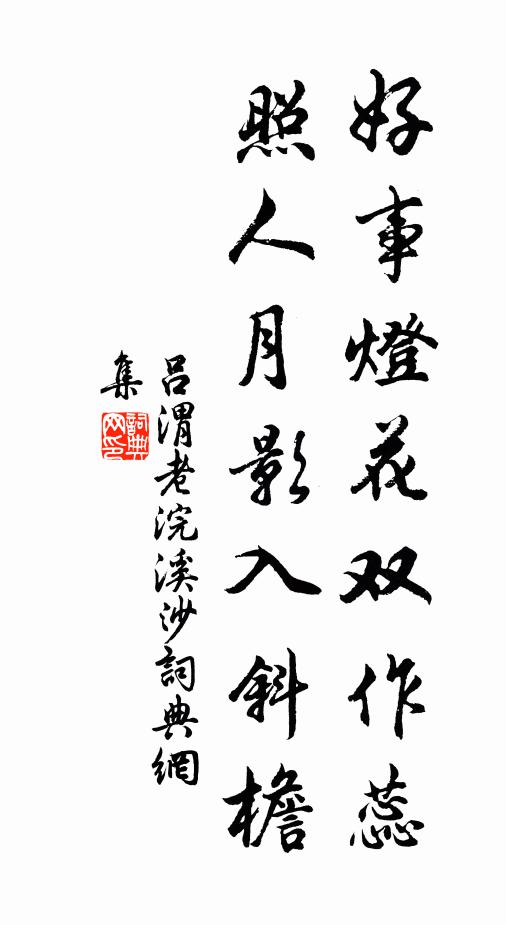 好事燈花双作蕊
照人月影入斜檐
吕渭老浣溪沙詞典網
集
詞典
网印